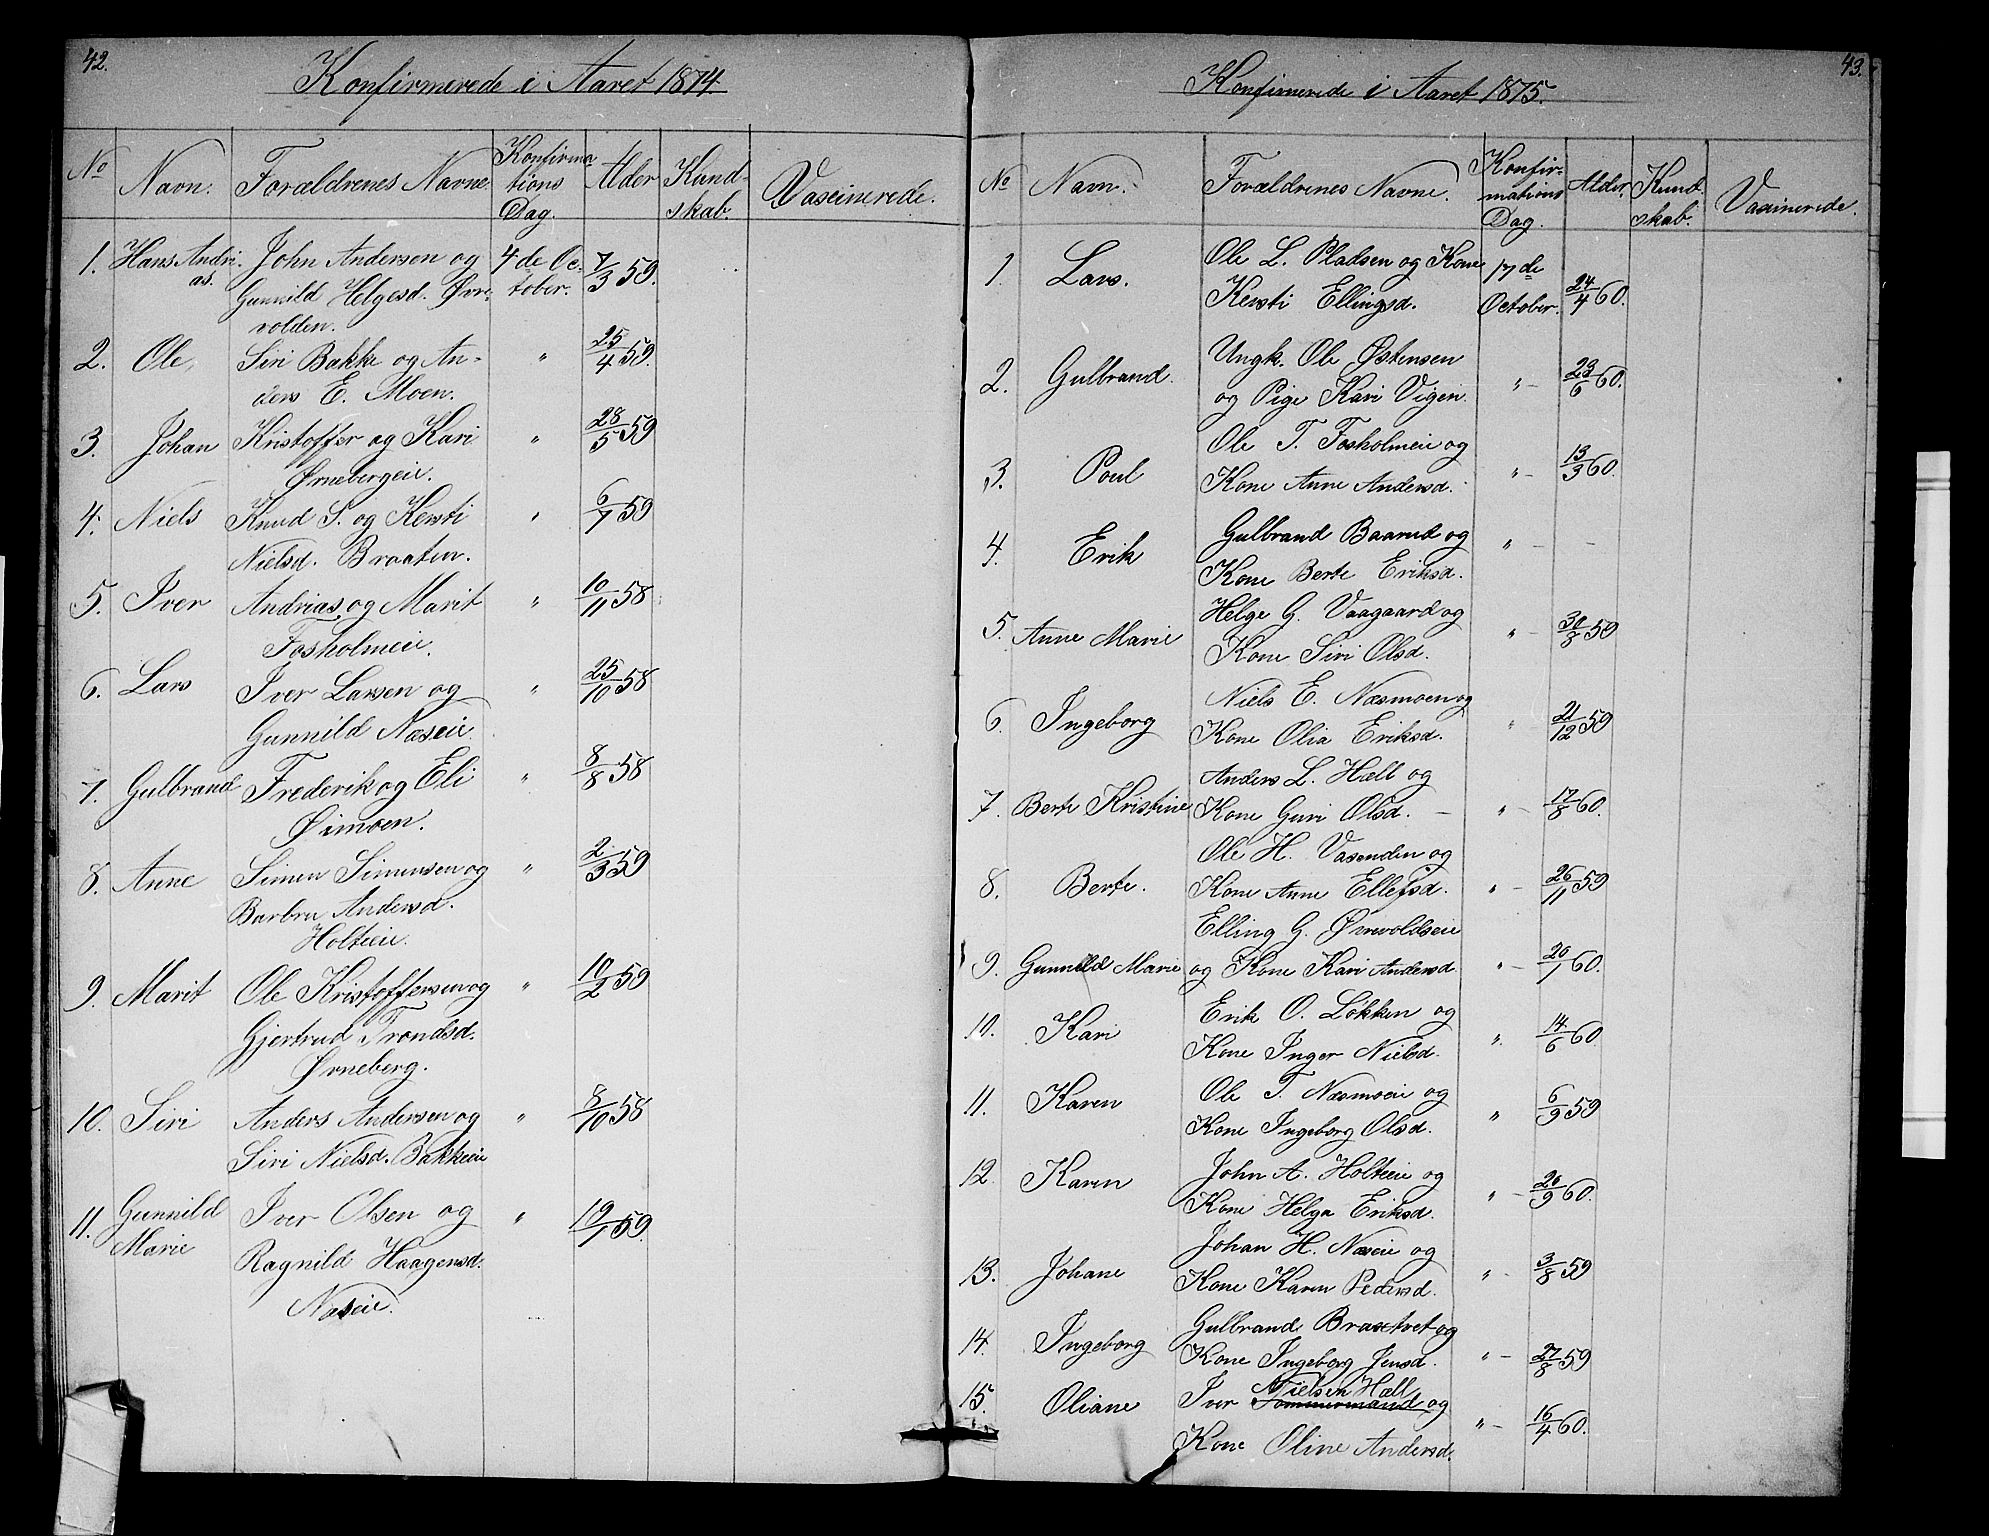 42.
Konfirmerede i Aaret 1874.
No Navn. Forældrenes Navne Konfirma tions Dag. Alder Kund- skab. Vascinerede.
1. Hans Andri- John Andersen og 4de Oc- 7/3 59.
as. Gunnild Helgesd. Øvre- tober.
volden.
2. Ole, Siri Bakke og An- " 25/4 59.
ders E. Moen.
3. Johan Kristoffer og Kari " 28/5 59
Ørnebergeie.
4. Niels Knud S. og Kersti " 6/7 59
Nielsd. Braaten.
5. Iver Andrias og Marit " 10/11 58
Fosholmeie.
6. Lars Iver Larsen og " 25/10 58
Gunnild Næseie.
7. Gulbrand Frederik og Eli " 8/8 58
Øimoen.
8. Anne Simen Simensen og " 2/3 59
Barbra Andersd.
Holteeie.
9. Marit Ole Kristoffersen og " 10/2 59
Gjertrud Trondsd.
Ørneberg.
10. Siri Anders Andersen og " 8/10 58
Siri Nielsd. Bakkeeie
11. Gunnild Iver Olsen og " 19/1 59.
Marie Ragnild Haagensd.
Næseie.
43.
Konfirmerede i Aaret 1875.
No Navn. Forældrenes Navne. Konfir- mations Dag. Alder. Kund- skab. Vascinerede.
1. Lars. Ole L. Pladsen og Kone 17de
Kersti Ellingsd. October. 24/4 60.
2. Gulbrand. Ungk. Ole Østensen
og Pige Kari Vigen. " - 23/6 60.
3. Poul Ole T. Fosholmeie og
Kone Anne Andersd. " - 13/3 60.
4. Erik Gulbrand Baarud og " - -
Kone Berte Eriksd.
5. Anne Marie Helge G. Vaagaard og " - 30/8 59
Kone Siri Olsd.
6. Ingeborg Niels E. Næsmoen og
Kone Olia Eriksd. " 21/12 59
7. Berte Kristine Anders L. Hæll og
Kone Guri Olsd. - " - 17/8 60.
8. Berte. Ole H. Vasenden og
Kone Anne Ellefsd. " - 26/11 59
Elling G. Ørevoldseie
9. Gunnild Marie og Kone Kari Andersd. " - 20/1 60.
10. Kari Erik O. Løkken og
Kone Inger Nielsd. " 14/6 60.
11. Karen Ole T. Næsmoeie og
Kone Ingeborg Olsd. " 6/9 59
12. Karen John A. Holteeie og
Kone Helga Eriksd. " - 20/9 60.
13. Johane Johan H. Næseie og
Kone Karen Pedersd. " - 3/8 59
14. Ingeborg Gulbrand Braatvet og
Kone Ingeborg Jensd. " - 27/8 59
Nielsen Hæll
15. Oliane Iver Tommermand og
Kone Oline Andersd. " - 16/4 60.